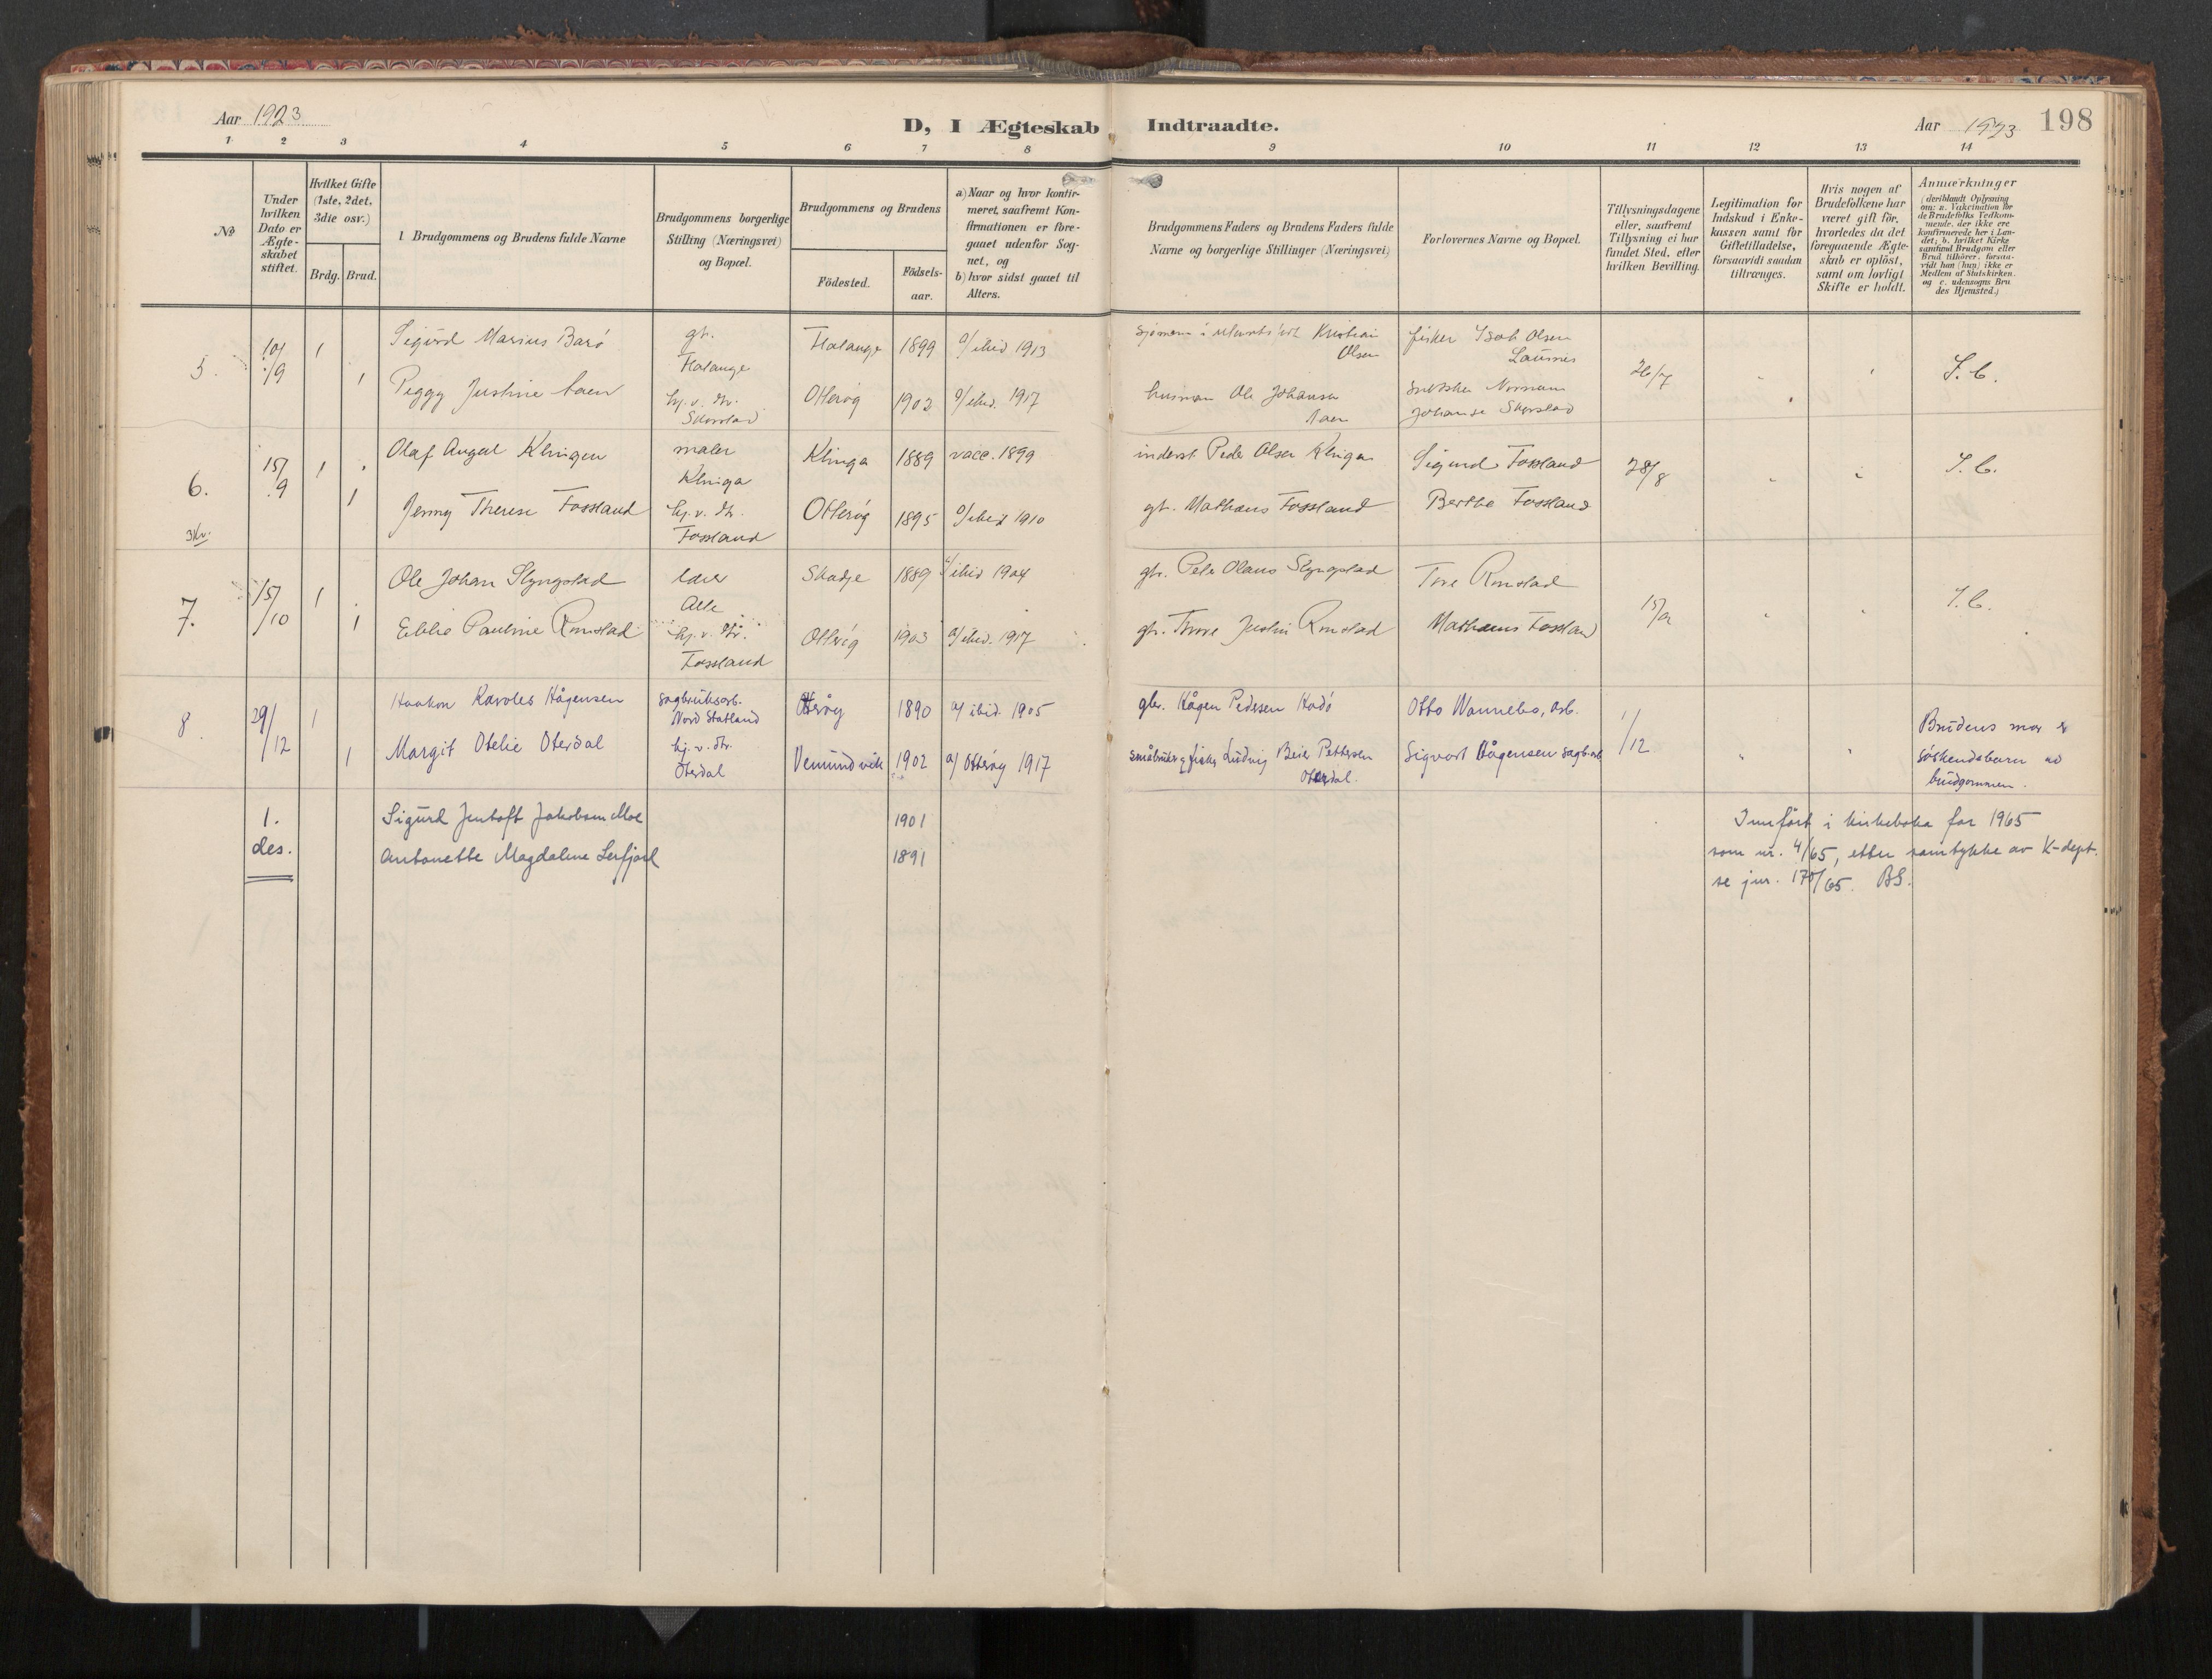 Aar 1923
D, I Ægteskab Indtraadte.
Aar 1923
198
1 2 3 4 5 6 7 8 9 10 11 12 13 14
No
Under hvilken Dato er Ægteskabet stiftet.
Hvilket Gifte (1ste, 2det, 3die osv.)
Brdg. Brud.
Brudgommens og Brudens fulde Navne
Brudgommens borgerlige Stilling (Næringsvei) og Bopæl.
Brudgommens og Brudens
Födested.
Födsels-aar.
a) Naar og hvor konfirmeret, saafremt Konfirmationen er foregaaet udenfor Sognet, og
b) hvor sidst gaaet til Alters.
Brudgommens Faders og Brudens Faders fulde Navne og borgerlige Stillinger (Næringsvei)
Forlovernes Navne og Bopæl.
Tillysningsdagene eller, saafremt Tillysning ei har fundet Sted, efter hvilken Bevilling.
Legitimation for Indskud i Enkekassen samt for Giftetilladelse, forsaavidt saadan tiltrænges.
Hvis nogen af Brudefolkene har været gift för, hvorledes da det foregaaende Ægteskab er oplöst, samt om lovligt Skifte er holdt.
Anmærkninger
(deriblandt Oplysning om: a. Vakcination for de Brudefolks Vedkommende, der ikke ere konfirmerede her i Landet; b. hvilket Kirkesamfund Brudgom eller Brud tilhörer, forsaavidt han (hun) ikke er Medlem af Statskirken, og c. udensogns Brudes Hjemsted.)
5. 10/9 1 Sigurd Marius Barö gb. 1899 a/ ibid 1913 Kristian Olsen fisker Isak Olsen 26/7 S. C.
1 Peggy Justine Aaen hj. v. str. Skorstad Otteröy 1902 a/ ibid. 1917 husman Ole Johansen Aaen Johanse Skorstad
6. 15/9 1 Olaf Angel Klingen maler Klinga Klinga 1889 vacc. 1899 inderst Peder Olsen Klingen Sigurd Fossland 28/8 S. C.
1 Jenny Therese Fossland hj. v. str. Fossland Otteröy 1895 a/ ibid 1910 gb. Mathæus Fossland Berthe Fossland
7. 15/10 1 Ole Johan Slyngstad Skodje 1889 a/ ibid 1904 gbr. Peter Olaus Slyngstad Tore Romstad 15/9 S. C.
1 Pauline Romstad hj. v. str. Fossland Otteröy 1903 a/ ibid. 1917 gbr. Thore Justin Romstad Mathæus Fossland
8. 29/12 1 Haakon Karoles Hågensen sagbruksarb. Nord Statland Otteröy 1890 a/ ibid. 1905 gbr. Hågen Pedersen Hadö Otto Wannebo, arb. 1/12 Brudens mor er söskendebarn av brudgommen.
1 Margit Otelie Oterdal hj. v. str. Oterdal Vemundvik 1902 a/ Otteröy 1917 småbruker og fisker Ludvig Beier Pettersen Oterdal. Sigvart Hågensen sagb.arb.
1. des. Sigurd Jentoft Jakobsen Moe 1901
Antonette Magdalene Serfjord 1891
Innfört i kirkeboka for 1965
som nr. 4/65, etter samtykke av K-dept.
se jnr. 170/65. BS.